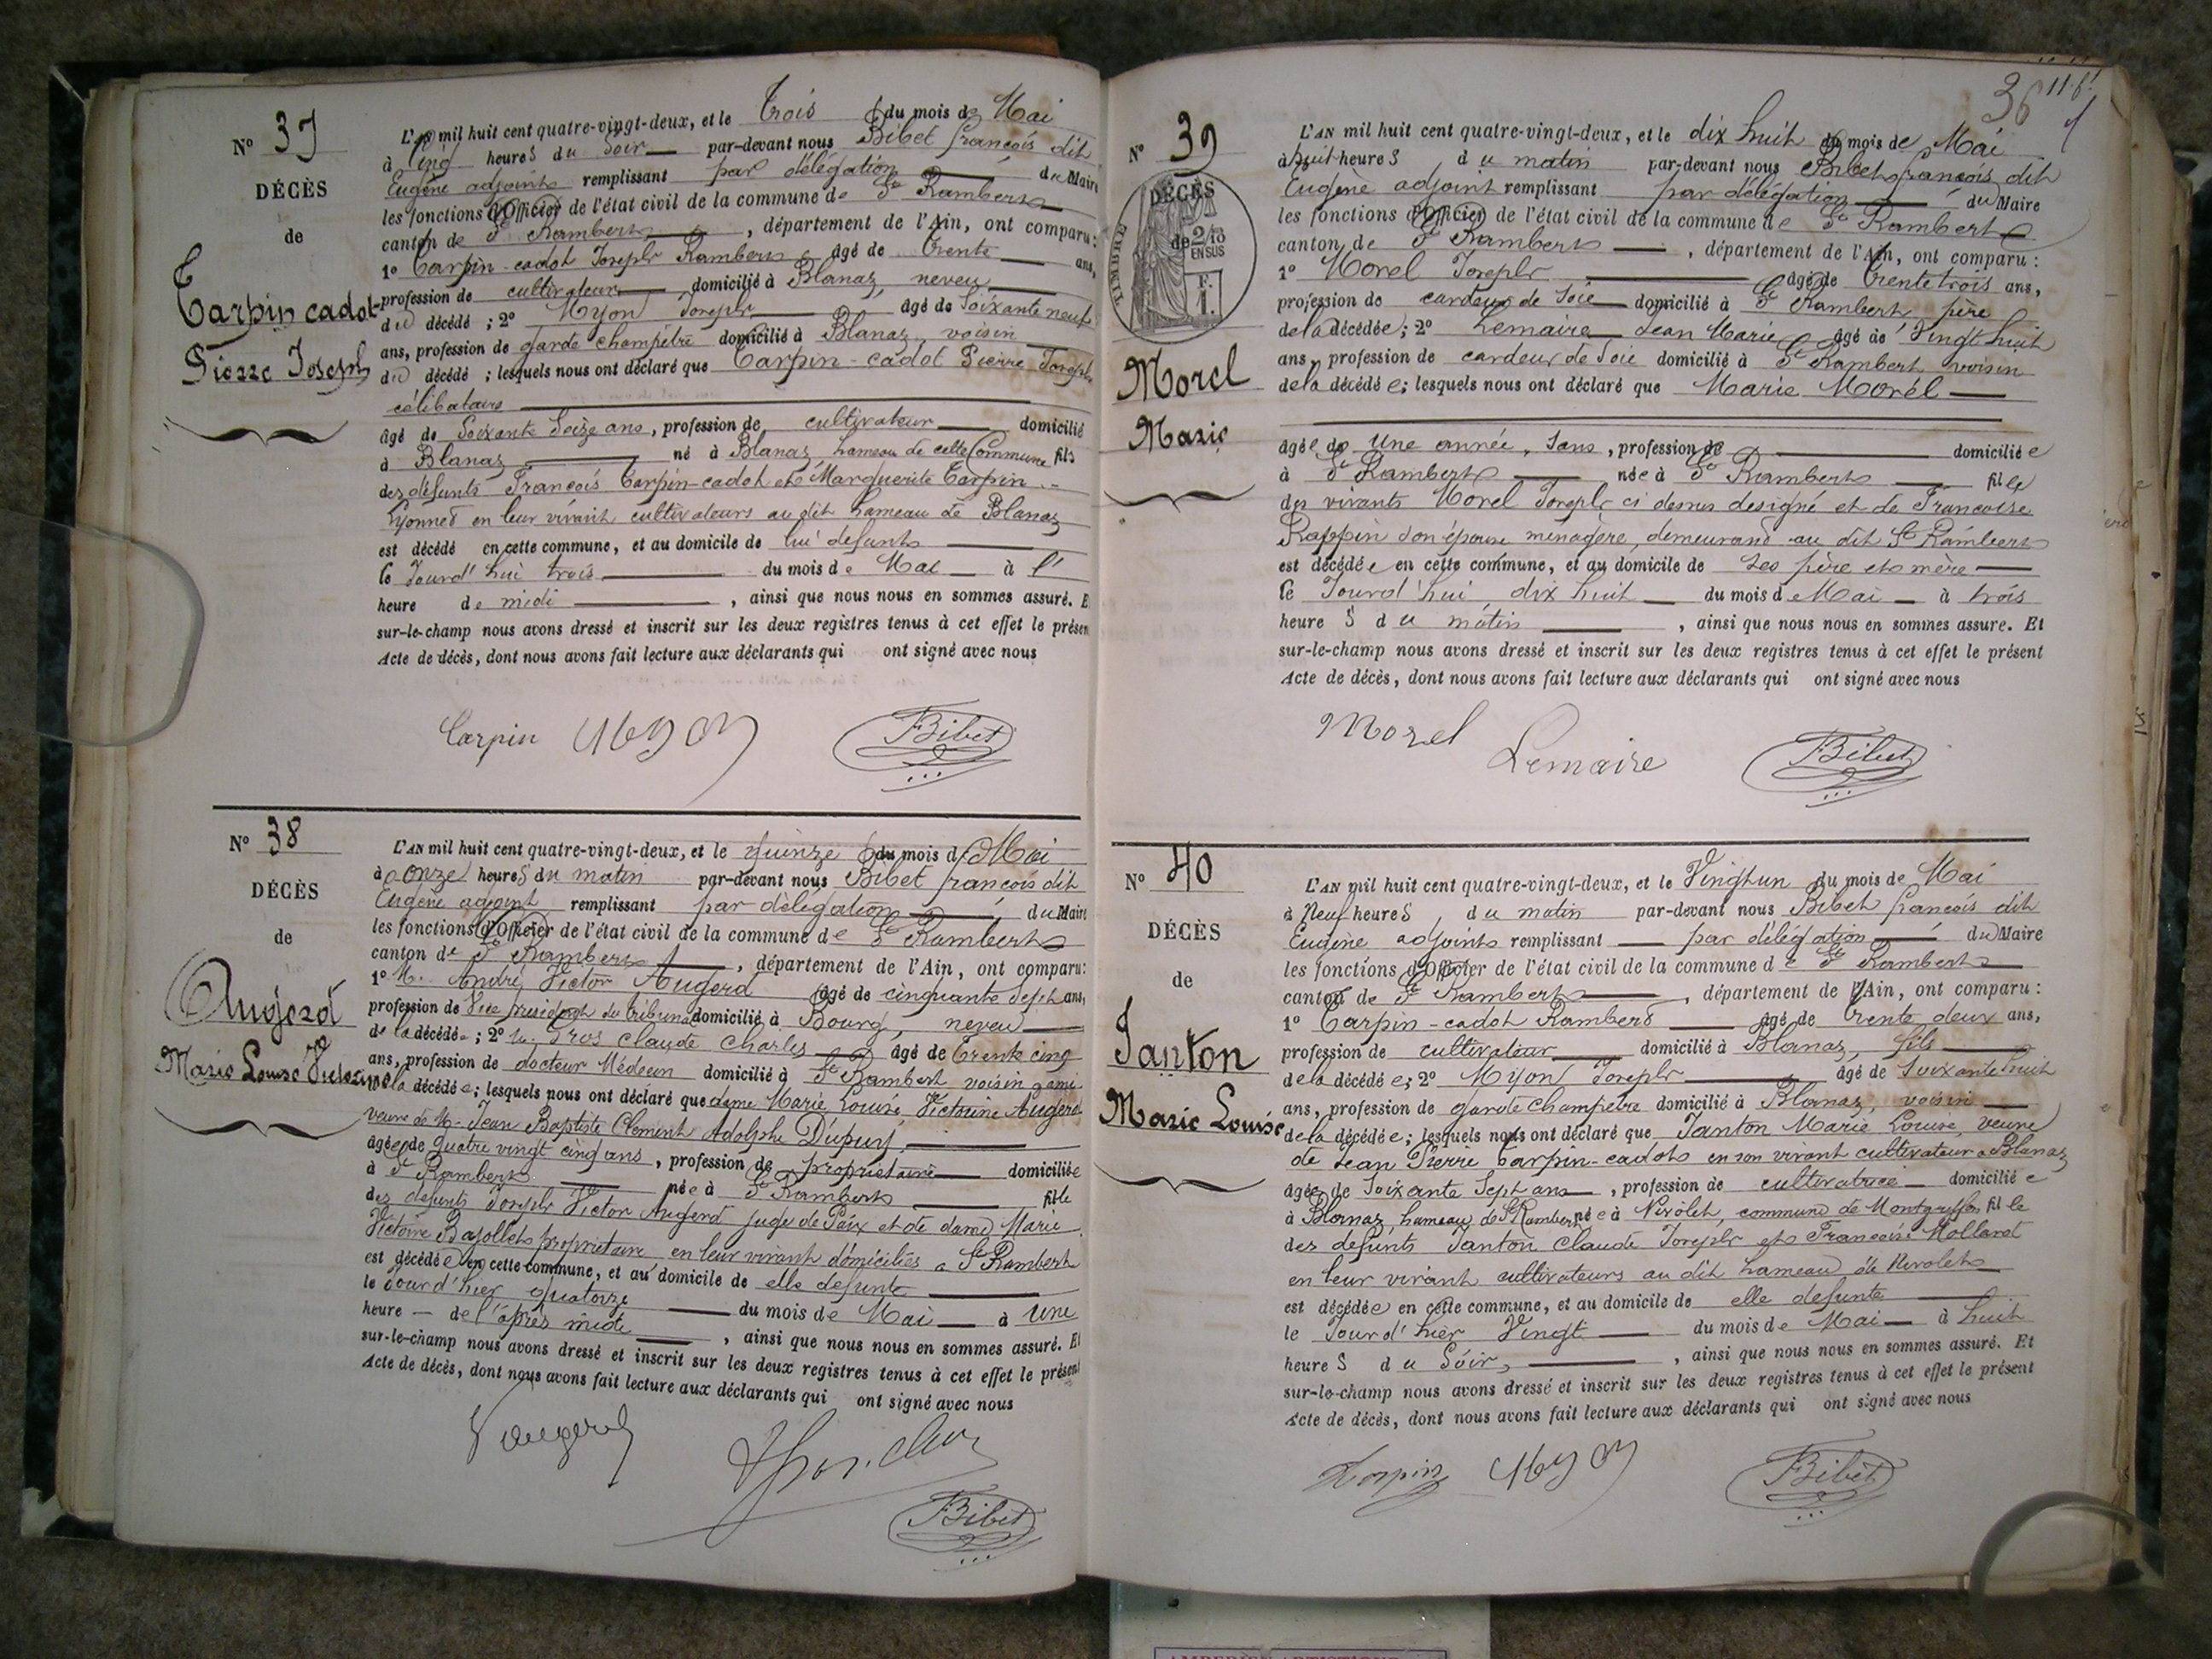 N° 37
DÉCÈS
de
Tarpin cadot
Pierre Joseph
L'AN mil huit cent quatre-vingt-deux, et le trois du mois de Mai
à cinq heures du soir par-devant nous Bibet françois dit
Eugène adjoint remplissant par délégation du Maire
les fonctions d'Officier de l'état civil de la commune de St Rambert
canton de St Rambert, département de l'Ain, ont comparu:
1° Tarpin-cadot Joseph Rambert âgé de trente ans,
profession de cultivateur domicilié à Blanaz, neveu
du décédé; 2° Myon Joseph âgé de soixante neuf
ans, profession de garde champêtre domicilié à Blanaz voisin
du décédé; lesquels nous ont déclaré que Tarpin-cadot Pierre Joseph
célibataire
âgé de soixante seize ans, profession de cultivateur domicilié
à Blanaz né à Blanaz, hameau de cette Commune fils
des défunts François Tarpin-cadot et Marguerite Tarpin
Lyonned en leur vivant cultivateurs au dit hameau de Blanaz
est décédé en cette commune, et au domicile de lui défunt
le Jourd'hui trois du mois de Mai à l'
heure de midi, ainsi que nous nous en sommes assuré. E
sur-le-champ nous avons dressé et inscrit sur les deux registres tenus à cet effet le présen
Acte de décès, dont nous avons fait lecture aux déclarants qui ont signé avec nous
Tarpin Myon Bibet
N° 38
DÉCÈS
de
Augerd
Marie Louise Victorine
L'AN mil huit cent quatre-vingt-deux, et le quinze du mois de Mai
à onze heures du matin par-devant nous Bibet françois dit
Eugène adjoint remplissant par délégation du Maire
les fonctions d'Officier de l'état civil de la commune de St Rambert
canton de St Rambert, département de l'Ain, ont comparu:
1° M. André Victor Augerd âgé de cinquante sept ans,
profession de Vice président du tribunal domicilié à Bourg, neveu
de la décédée; 2° M. Gros Claude Charles âgé de trente cinq
ans, profession de docteur Médecin domicilié à St Rambert voisin
de la décédée; lesquels nous ont déclaré que dame Marie Louise Victorine Augerd
veuve de M. Jean Baptiste Clement Adolphe Dupuy
âgée de quatre vingt cinq ans, profession de propriétaire domiciliée
à St Rambert née à St Rambert fille
des défunts Joseph Victor Augerd juge de Paix et de dame Marie
Victoire Bajollet propriétaire en leur vivant domiciliés à St Rambert
est décédée en cette commune, et au domicile de elle défunte
le Jour d'hier quatorze du mois de Mai à une
heure de l'après midi, ainsi que nous nous en sommes assuré. Et
sur-le-champ nous avons dressé et inscrit sur les deux registres tenus à cet effet le présent
Acte de décès, dont nous avons fait lecture aux déclarants qui ont signé avec nous
V augerd
Bibet
36
N° 39
DÉCÈS
de
TIMBRE
2/10
EN SUS
Morel
Marie
L'AN mil huit cent quatre-vingt-deux, et le dix huit du mois de Mai
à huit heures du matin par-devant nous Bibet françois dit
Eugène adjoint remplissant par délégation du Maire
les fonctions d'Officier de l'état civil de la commune de St Rambert
canton de St Rambert, département de l'Ain, ont comparu:
1° Morel Joseph âgé de trente trois ans,
profession de cardeur de soie domicilié à St Rambert père
de la décédée; 2° Lemaire Jean Marie âgé de Vingt huit
ans, profession de cardeur de soie domicilié à St Rambert voisin
de la décédée; lesquels nous ont déclaré que Marie Morel
âgée de une année, sans, profession de domiciliée
à St Rambert née à St Rambert fille
des vivants Morel Joseph ci dessus designé et de Françoise
Rappin son épouse ménagère, demeurand au dit St Rambert
est décédée en cette commune, et au domicile de ses père et mère
le Jourd'hui dix huit du mois de Mai à trois
heures du matin, ainsi que nous nous en sommes assuré. Et
sur-le-champ nous avons dressé et inscrit sur les deux registres tenus à cet effet le présent
Acte de décès, dont nous avons fait lecture aux déclarants qui ont signé avec nous
Morel Lemaire Bibet
N° 40
DÉCÈS
de
Janton
Marie Louise
L'AN mil huit cent quatre-vingt-deux, et le Vingt un du mois de Mai
à neuf heures du matin par-devant nous Bibet françois dit
Eugène adjoint remplissant par délégation du Maire
les fonctions d'Officier de l'état civil de la commune de St Rambert
canton de St Rambert, département de l'Ain, ont comparu:
1° Tarpin-cadot Rambert âgé de trente deux ans,
profession de cultivateur domicilié à Blanaz, fils
de la décédée; 2° Myon Joseph âgé de soixante huit
ans, profession de garde champêtre domicilié à Blanaz, voisin
de la décédée; lesquels nous ont déclaré que Janton Marie Louise, veuve
de Jean Pierre Tarpin-cadot en son vivant cultivateur à Blanaz
âgée de soixante sept ans, profession de cultivatrice domiciliée
à Blanaz, hameau de St Rambert née à Nivolet, commune de Montgriffon fille
des défunts Janton Claude Joseph et Françoise Mollard
en leur vivant cultivateurs au dit hameau de Nivolet
est décédée en cette commune, et au domicile de elle défunte
le Jour d'hier Vingt du mois de Mai à huit
heures du soir, ainsi que nous nous en sommes assuré. Et
sur-le-champ nous avons dressé et inscrit sur les deux registres tenus à cet effet le présent
Acte de décès, dont nous avons fait lecture aux déclarants qui ont signé avec nous
Tarpin Myon Bibet